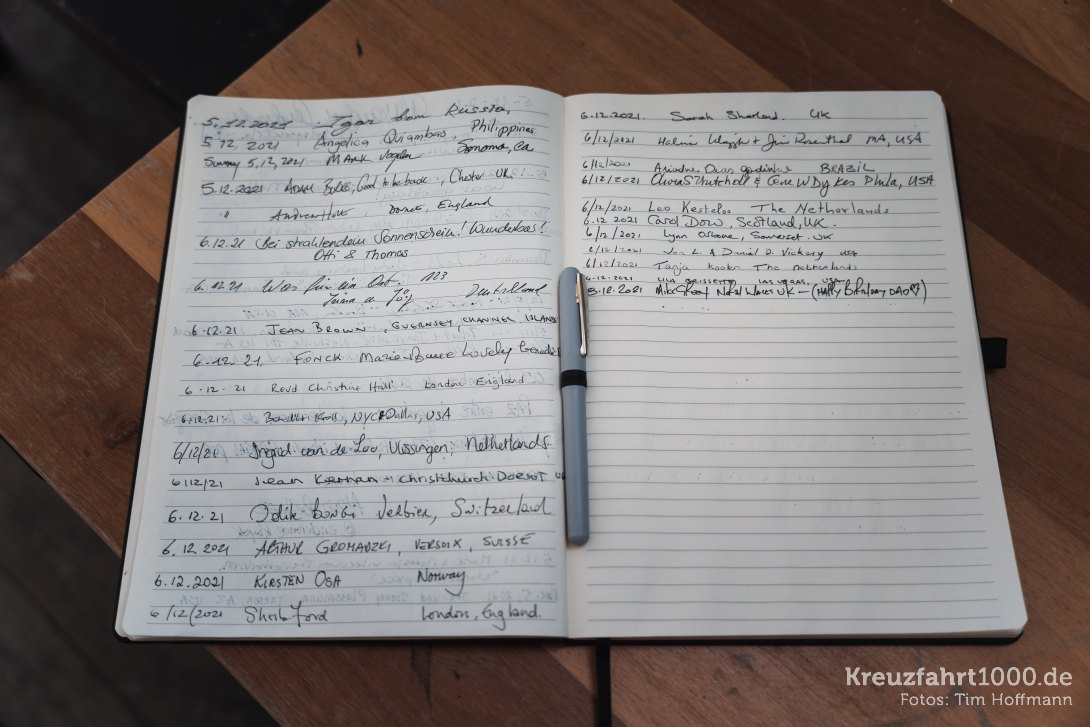 5.12.2021 Igor from Russia,
5.12.2021 Angelica Quiambao, Philippines
Sunday 5,12,2021 Mark Vogler Sonoma, Ca
5.12.2021 Adam Burke, Good to be back, Chester UK.
" Andrew, England
6.12.21 Bei strahlendem Sonnenschein! Wunderbar!
Otti & Thomas
6.12.21 Was für ein Ort. !!!
Deutschland
6.12.21 JEAN BROWN, GUERNSEY, CHANNEL ISLANDS
6.12.21. FONCK Marie-Lovely
6-12-21 Revd Christine Hall London England
6.12.21 NYC & Dallas, USA
6/12/21 Ingrid van de Loo, Vlissingen, Netherlands
6/12/21 Jean Christchurch Dorset UK
6.12.21 Odile Verbier, Switzerland
6.12.2021 ARTHUR GROMADZKI, VERSOIX, SUISSE
6.12.2021 KIRSTEN OSA Norway
6/12/2021 Sheila Ford London, England.
6.12.2021. Sarah UK
6/12/2021 + Jim Rosenthal MA, USA
6/12/2021 Ariadne Dias BRAZIL
6/12/2021 & Gene W Dykes Phila, USA
6/12/2021 Leo Kestelos The Netherlands
6.12.2021 Carol Dow, Scotland, UK.
6/12/2021 Lynn Osborne, Somerset. UK
6/12/2021 Jan L. & Daniel D. Vickery USA
6/12/2021 Tanja The Netherlands
6.12.2021 LILA LAS VEGAS, USA
5.12.2021 Mike North Wales UK — (HAPPY Birthday DAD♡)
Kreuzfahrt1000.de
Fotos: Tim Hoffmann